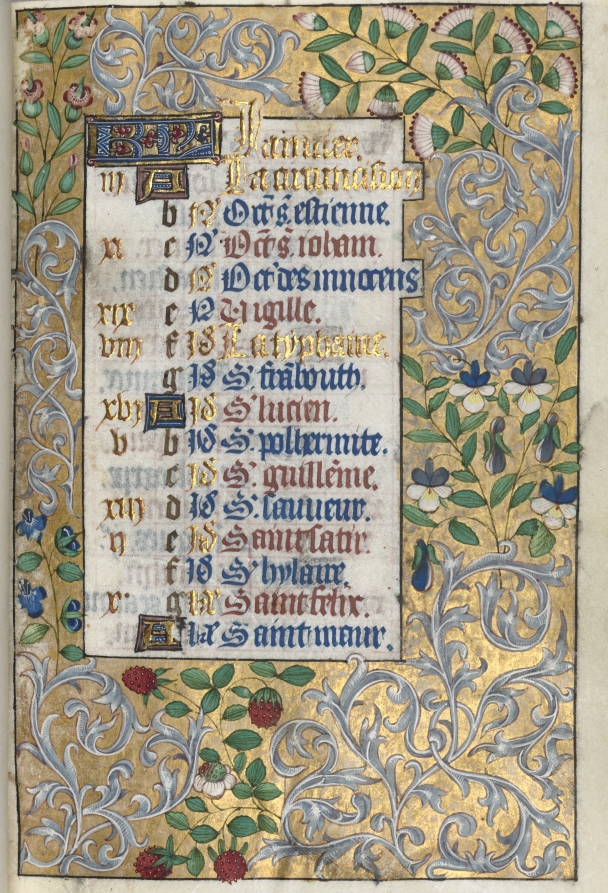 KL Januier.
iij A La circuncision
b N Oct s. estienne.
xi c N Oct s. iohan.
d N Oct des innocens
xix e N Uigille.
viij f Id La typhaine.
g Id S' frābouth.
xvj A Id S' lucien.
v b Id S. pol hermite.
c Id S' guillēme.
xiij d Id S. sauueur.
ij e Id Saint satir.
f Id S' hylaire.
x g kl Saint felix.
A kl Saint maur.